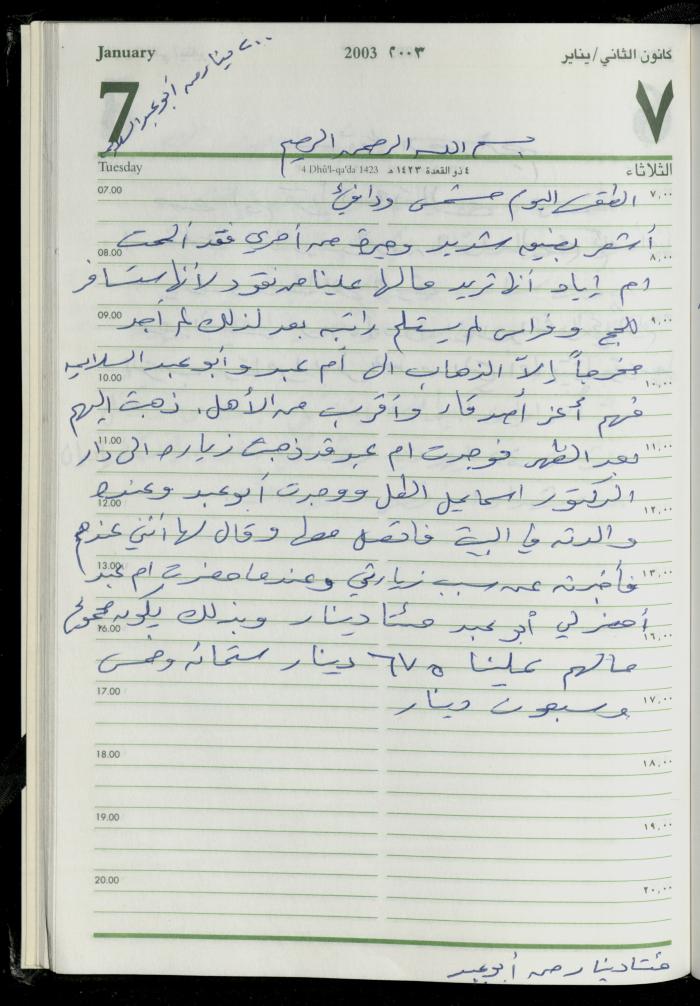 January
2003 ٢٠٠٣
كانون الثاني/يناير
٢٠٠ دينار من أبو عبد السلام
7
٧
بسم الله الرحمن الرحيم
Tuesday
4 Dhū'l-qa'da 1423
٤ ذو القعدة ١٤٢٣ هـ
الثلاثاء
07.00 الطقس اليوم مشمس ودافئ ٧,٠٠
أشعر بضيق شديد وحيرة من أمري فقد ألحت
08.00 ٨,٠٠
ام إياد أنها تريد مالها علينا من نقود لأنها ستسافر
09.00 للحج وفراس لم يستلم راتبه بعد لذلك لم أجد ٩,٠٠
مخرجاً إلاّ الذهاب الى أم عبد وأبو عبد السلام
10.00 ١٠,٠٠
فهم أعز أصدقاء وأقرب من الأهل، ذهبت إليهم
11.00 بعد الظهر فوجدت ام عبد قد ذهبت زيارة الى دار ١١,٠٠
الدكتور اسماعيل الطل ووجدت أبو عبد وعنده
12.00 ١٢,٠٠
والدته في البيت فاتصل معها وقال لها أنني عندهم
13.00 فأخبرته عن سبب زيارتي وعندما حضرت ام عبد ١٣,٠٠
أحضر لي أبو عبد مئتا دينار وبذلك يكون مجموع
16.00 ١٦,٠٠
مالهم علينا ٦٧٥ دينار ستمائة وخمس
17.00 وسبعون دينار ١٧,٠٠
18.00 ١٨,٠٠
19.00 ١٩,٠٠
20.00 ٢٠,٠٠
مئتا دينار من أبو عبد